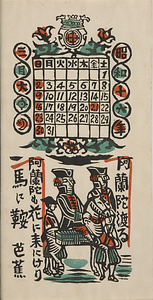 昭和十六年
三月大の分
日月火水木金土
1
2 3 4 5 6 7 8
9 10 11 12 13 14 15
16 17 18 19 20 21 22
23 24 25 26 27 28 29
30 31
阿蘭陀渡る
阿蘭陀も花に来にけり
馬に鞍 芭蕉